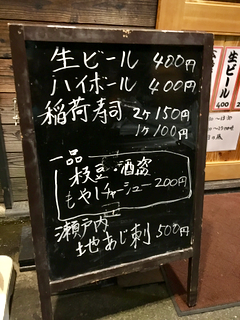 生ビール 400円
ハイボール 400円
稲荷寿司 2ヶ150円
1ヶ100円
一品
枝豆・酒盗
もやしチャーシュー 200円
瀬戸内
地あじ刺 500円
生ビール